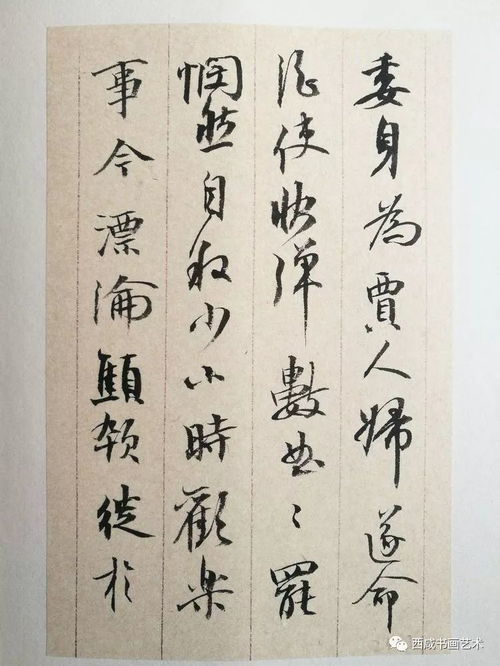 委身為賈人婦遂命
酒使快弹數曲〻罷
憫然自叙少小時歡樂
事今漂淪顦顇徙於
西咸书画艺术